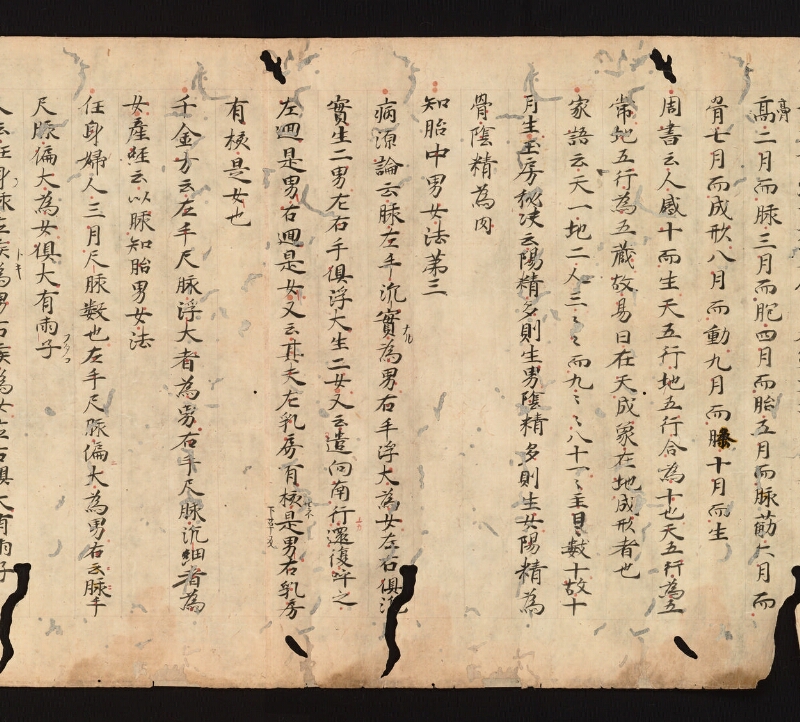 高二月而脉三月而肥四月而胎五月而脉筋六月而
骨七月而成形八月而動九月而 十月而生
周書云人感十而生天五行地五行合為十也天五行為五
常地五行為五蔵故易曰在天成象在地成形者也
家語云天一地二人三〻〻而九〻〻八十一〻主日〻數十故十
月生玉房秘决云陽精多則生男陰精多則生女陽精為
骨陰精為肉
知胎中男女法第三
病源論云脉左手沉實為男右手浮大為女左右俱沉
實生二男左右手俱浮大生二女又云遣向南行還復呼之
左迴是男右迴是女又云其夫左乳房有核是男右乳房
有核是女也
千金方云左手尺脉浮大者為男右手尺脉沉細者為
女産經云以脉知胎男女法
任身婦人三月尺脉數也左手尺脉偏大為男右云脉手
尺脉偏大為女俱大有兩子
又云任身脉左疾為男右疾為女左右俱大有兩子